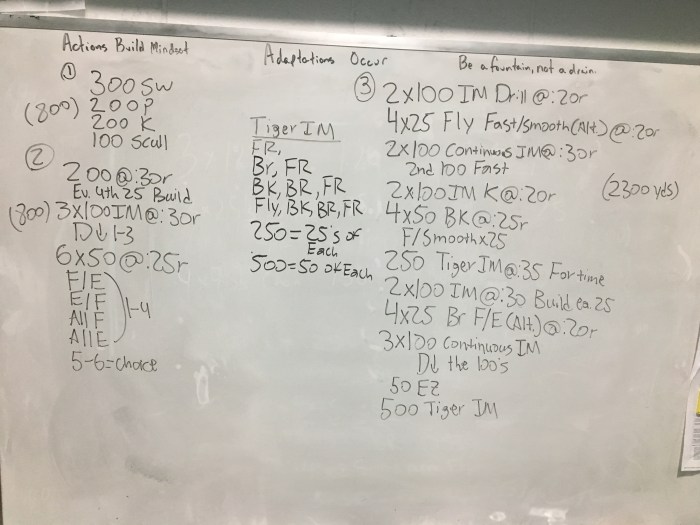 Actions Build Mindset
① 300 SW
(800) 200 P
200 K
100 Scull
② 200 @ :30r
Ev. 4th 25 Build
(800) 3x100 IM @ :30r
D↓ 1-3
6x50 @ :25r
F/E
E/F
All F
All E
1-4
5-6=choice
Adaptations Occur
Tiger IM
FR,
Br, FR
BK, BR, FR
Fly, BK, BR, FR
250=25's of
Each
500=50 of Each
Be a fountain, not a drain.
③ 2x100 IM Drill @ :20r
4x25 Fly Fast/Smooth (Alt.) @ :20r
2x100 Continuous IM @ :30r
2nd 100 Fast
2x100 IM K @ :20r (2300 yds)
4x50 BK @ :25r
F/Smooth x25
250 Tiger IM @ :35 For time
2x100 IM @ :30 Build ea. 25
4x25 Br F/E (Alt.) @ :20r
3x100 Continuous IM
D↓ the 100's
50 EZ
500 Tiger IM